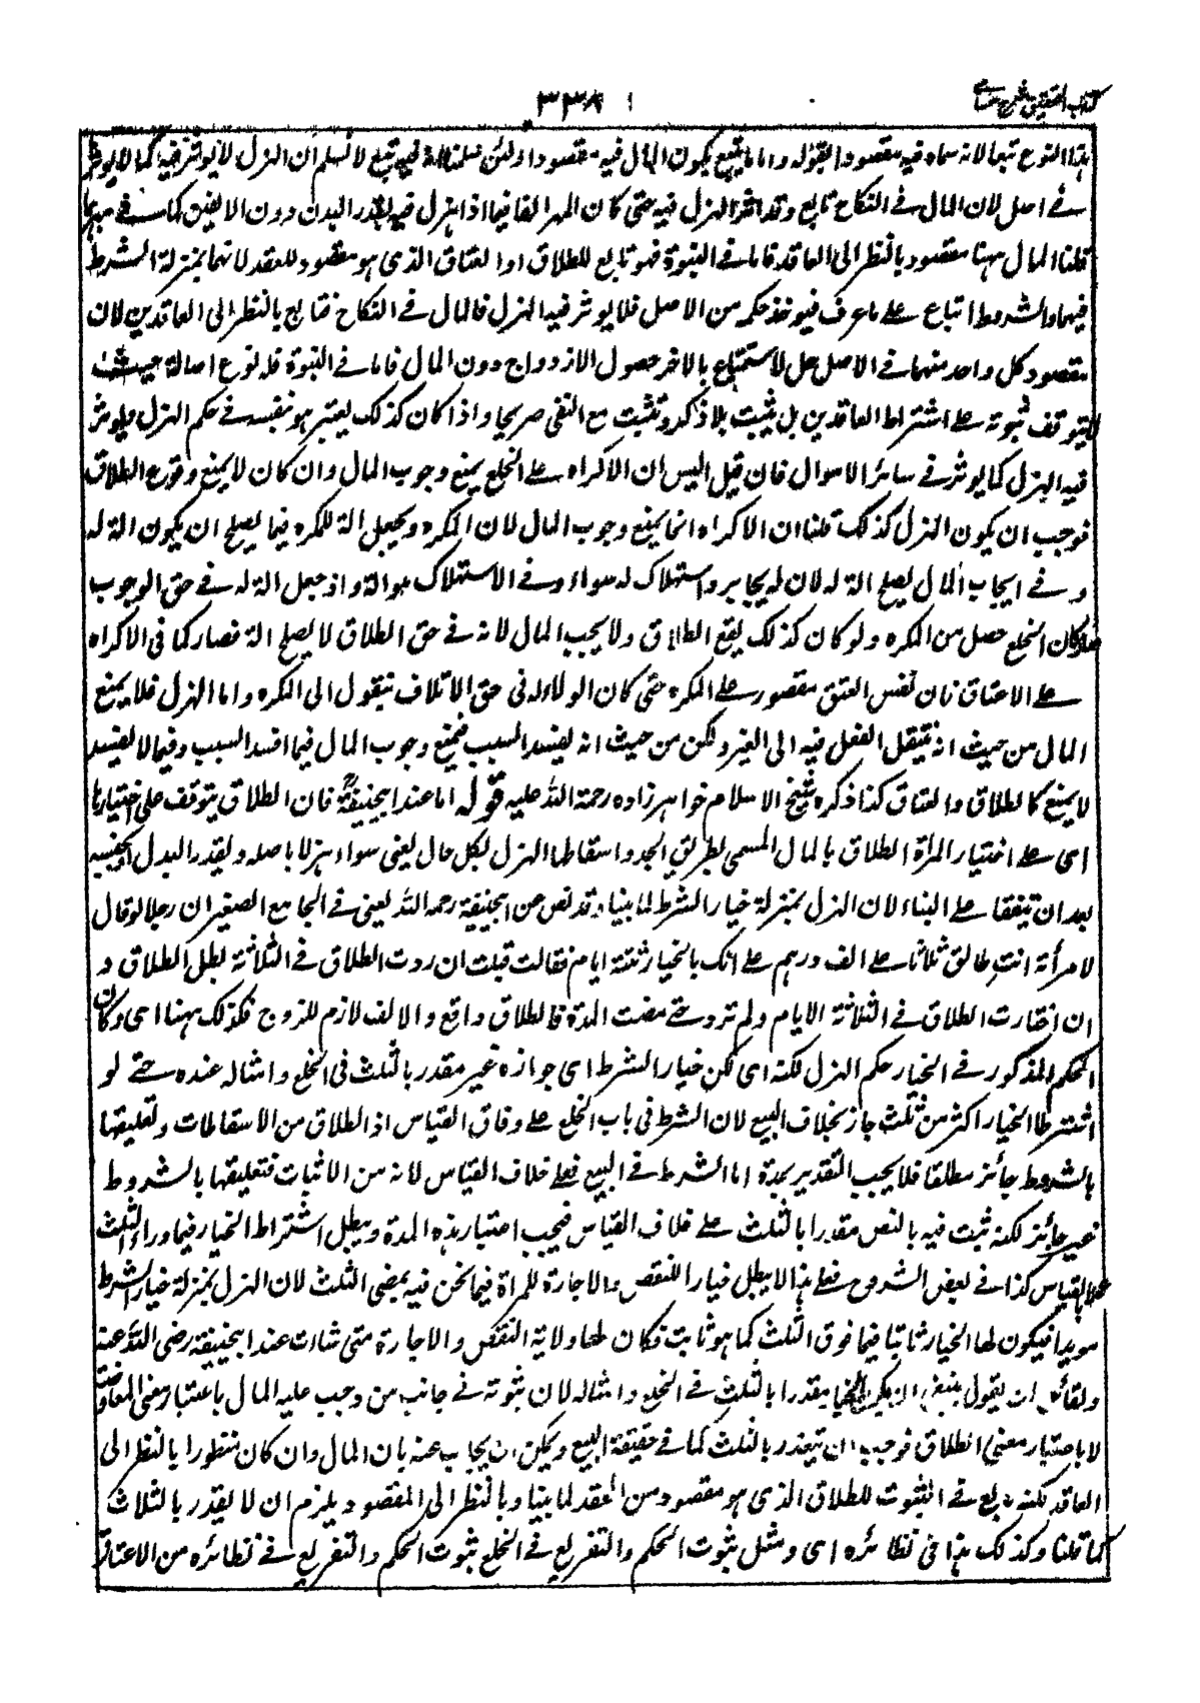 كتاب التحقيق شرح حسامي
٣٣٨
هذا النوع تبعا لانه سماه فيه مقصودا بقوله واما ما يتبع يكون المال فيه مقصودا ولئن سلمنا انه فيه تبع لا نسلم ان الهزل لا يوثر فيه كما لا يوثر
في اصل لان المال في النكاح تابع وقد اثر الهزل فيه حتى كان المهر الفا فيما اذا هزل فيه بقدر البدل دون الالفين كما
قلنا المال ههنا مقصود بالنظر الى العاقد فاما في الثبوت فهو تابع للطلاق او العتاق الذي هو مقصود للعقد لانهما بمنزلة الشرط
فيهما والشروط اتباع على ما عرف فيوخذ حكمه من الاصل فلا يوثر فيه الهزل فالمال في النكاح فتابع بالنظر الى العاقدين لان
مقصود كل واحد منهما في الاصل حل الاستمتاع بالاخر حصول الازدواج دون المال فاما في الثبوت فله نوع اصالة حيث
لا يتوقف ثبوته على اشتراط العاقدين بل يثبت بلا ذكر وتثبت مع النفي صريحا واذا كان كذلك يعتبر هو بنفسه في حكم الهزل فيوثر
فيه الهزل كما يوثر في سائر الاموال فان قيل اليس ان الاكراه على الخلع يمنع وجوب المال وان كان لا يمنع وقوع الطلاق
فوجب ان يكون الهزل كذلك قلنا ان الاكراه انما يمنع وجوب المال لان المكره يجعل الة للمكره فيما يصلح ان يكون الة له
و في ايجاب المال يصلح الة له لان ايجابه واستهلاكه سواء وفي الاستهلاك هو الة واذ جعل الة له في حق الوجوب
صار كان الخلع حصل من المكره ولو كان كذلك يقع الطلاق ولا يجب المال لانه في حق الطلاق لا يصلح الة فصار كما في الاكراه
على الاعتاق فان نفس العتق مقصور على المكره حتى كان الولاء له في حق الاتلاف ينقول الى المكره واما الهزل فلا يمنع
المال من حيث انه ينتقل الفعل فيه الى الغير ولكن من حيث انه يفسد السبب فيمنع وجوب المال فيما افسد السبب وفيما لا يفسد
لا يمنع كالطلاق والعتاق كذا ذكره شيخ الاسلام خواهرزاده رحمة الله عليه قوله اما عند ابيحنيفة رح فان الطلاق يتوقف على اختيارها
اى على اختيار المراة الطلاق بالمال المسمى بطريق الجد واسقاطها الهزل بكل حال يعني سواء هزلا باصله وبقدر البدل او بجنسه
بعد ان تيفقا على البناء لان الهزل بمنزلة خيار الشرط لما بينا وقد نص عن ابيحنيفة رحمه الله يعني في الجامع الصغير ان رجلا لو قال
لامرأته انت طالق ثلاثا على الف درهم على انك بالخيار ثلثة ايام فقالت قبلت ان ردت الطلاق في الثلاثة بطل الطلاق و
ان اختارت الطلاق في الثلاثة الايام ولم ترد حتى مضت المدة فالطلاق واقع والالف لازم للزوج فكذلك ههنا اى وكان
الحكم المذكور في الخيار حكم الهزل لكنه اى لكن خيار الشرط اى جوازه غير مقدر بالثلث في الخلع وامثاله عنده حتى لو
اشترطا الخيار اكثر من ثلث جاز بخلاف البيع لان الشرط في باب الخلع على وفاق القياس اذ الطلاق من الاسقاطات وتعليقها
بالشروط جائز مطلقا فلا يجب التقدير بمدة اما الشرط في البيع فعلى خلاف القياس لانه من الاثبات فتعليقها بالشروط
غير جائز لكنه ثبت فيه بالنص مقدرا بالثلث على خلاف القياس فيجب اعتبار هذه المدة ويبطل اشتراط الخيار فيما وراء الثلث
القياس كذا في بعض الشروح فعلى هذا لا يبطل خيار النقض والاجازة للمراة فيما نحن فيه بمضى الثلث لان الهزل بمنزلة خيار الشرط
موبدا فيكون لها الخيار ثابتا فيما فوق الثلث كما هو ثابت فكان لها ولاية النقض والاجازة متى شاءت عند ابيحنيفة رضى الله عنه
ولقائل ان يقول ينبغي ان يكون الخيار مقدرا بالثلث في الخلع وامثاله لان ثبوته في جانب من وجب عليه المال باعتبار معنى المعاوضة
لا باعتبار معنى الطلاق فوجب ان يتقدر بالثلث كما في حقيقة البيع ويمكن ان يجاب عنه بان المال وان كان منظورا بالنظر الى
العاقد لكنه تابع في الثبوت للطلاق الذي هو مقصود من العقد لما بينا وبالنظر الى المقصود يلزم ان لا يقدر بالثلاث
كما قلنا وكذلك هذا في نظائره اى ومثل ثبوت الحكم والتفريع في الخلع ثبوت الحكم والتفريع في نظائره من الاعتاق